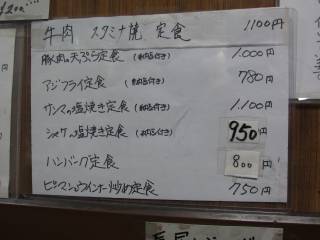 牛肉 スタミナ焼 定食 1100円
豚肉の天ぷら定食 1.000円
アジフライ定食 780円
サンマの塩焼き定食 1.100円
シャケの塩焼き定食 950円
ハンバーグ定食 800円
ピーマンとウインナー炒め定食 750円